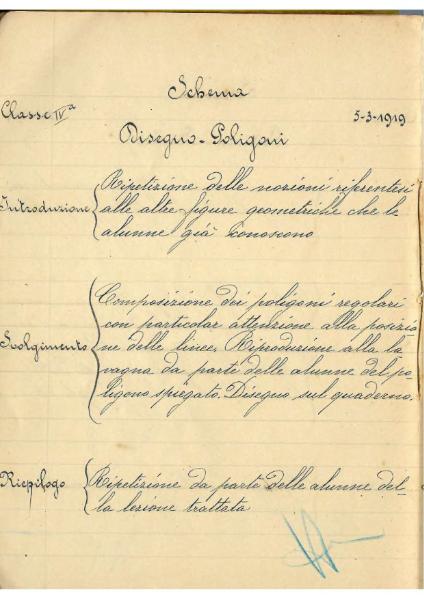 Schema
Classe IVª
5-3-1919
Disegno - Poligoni
Introduzione
Ripetizione delle nozioni riferentesi
alle altre figure geometriche che le
alunne già conoscono
Svolgimento
Composizione dei poligoni regolari
con particolar attenzione alla posizio
ne delle linee. Riproduzione alla la
vagna da parte delle alunne del po-
ligono spiegato. Disegno sul quaderno.
Riepilogo
Ripetizione da parte delle alunne del-
la lezione trattata